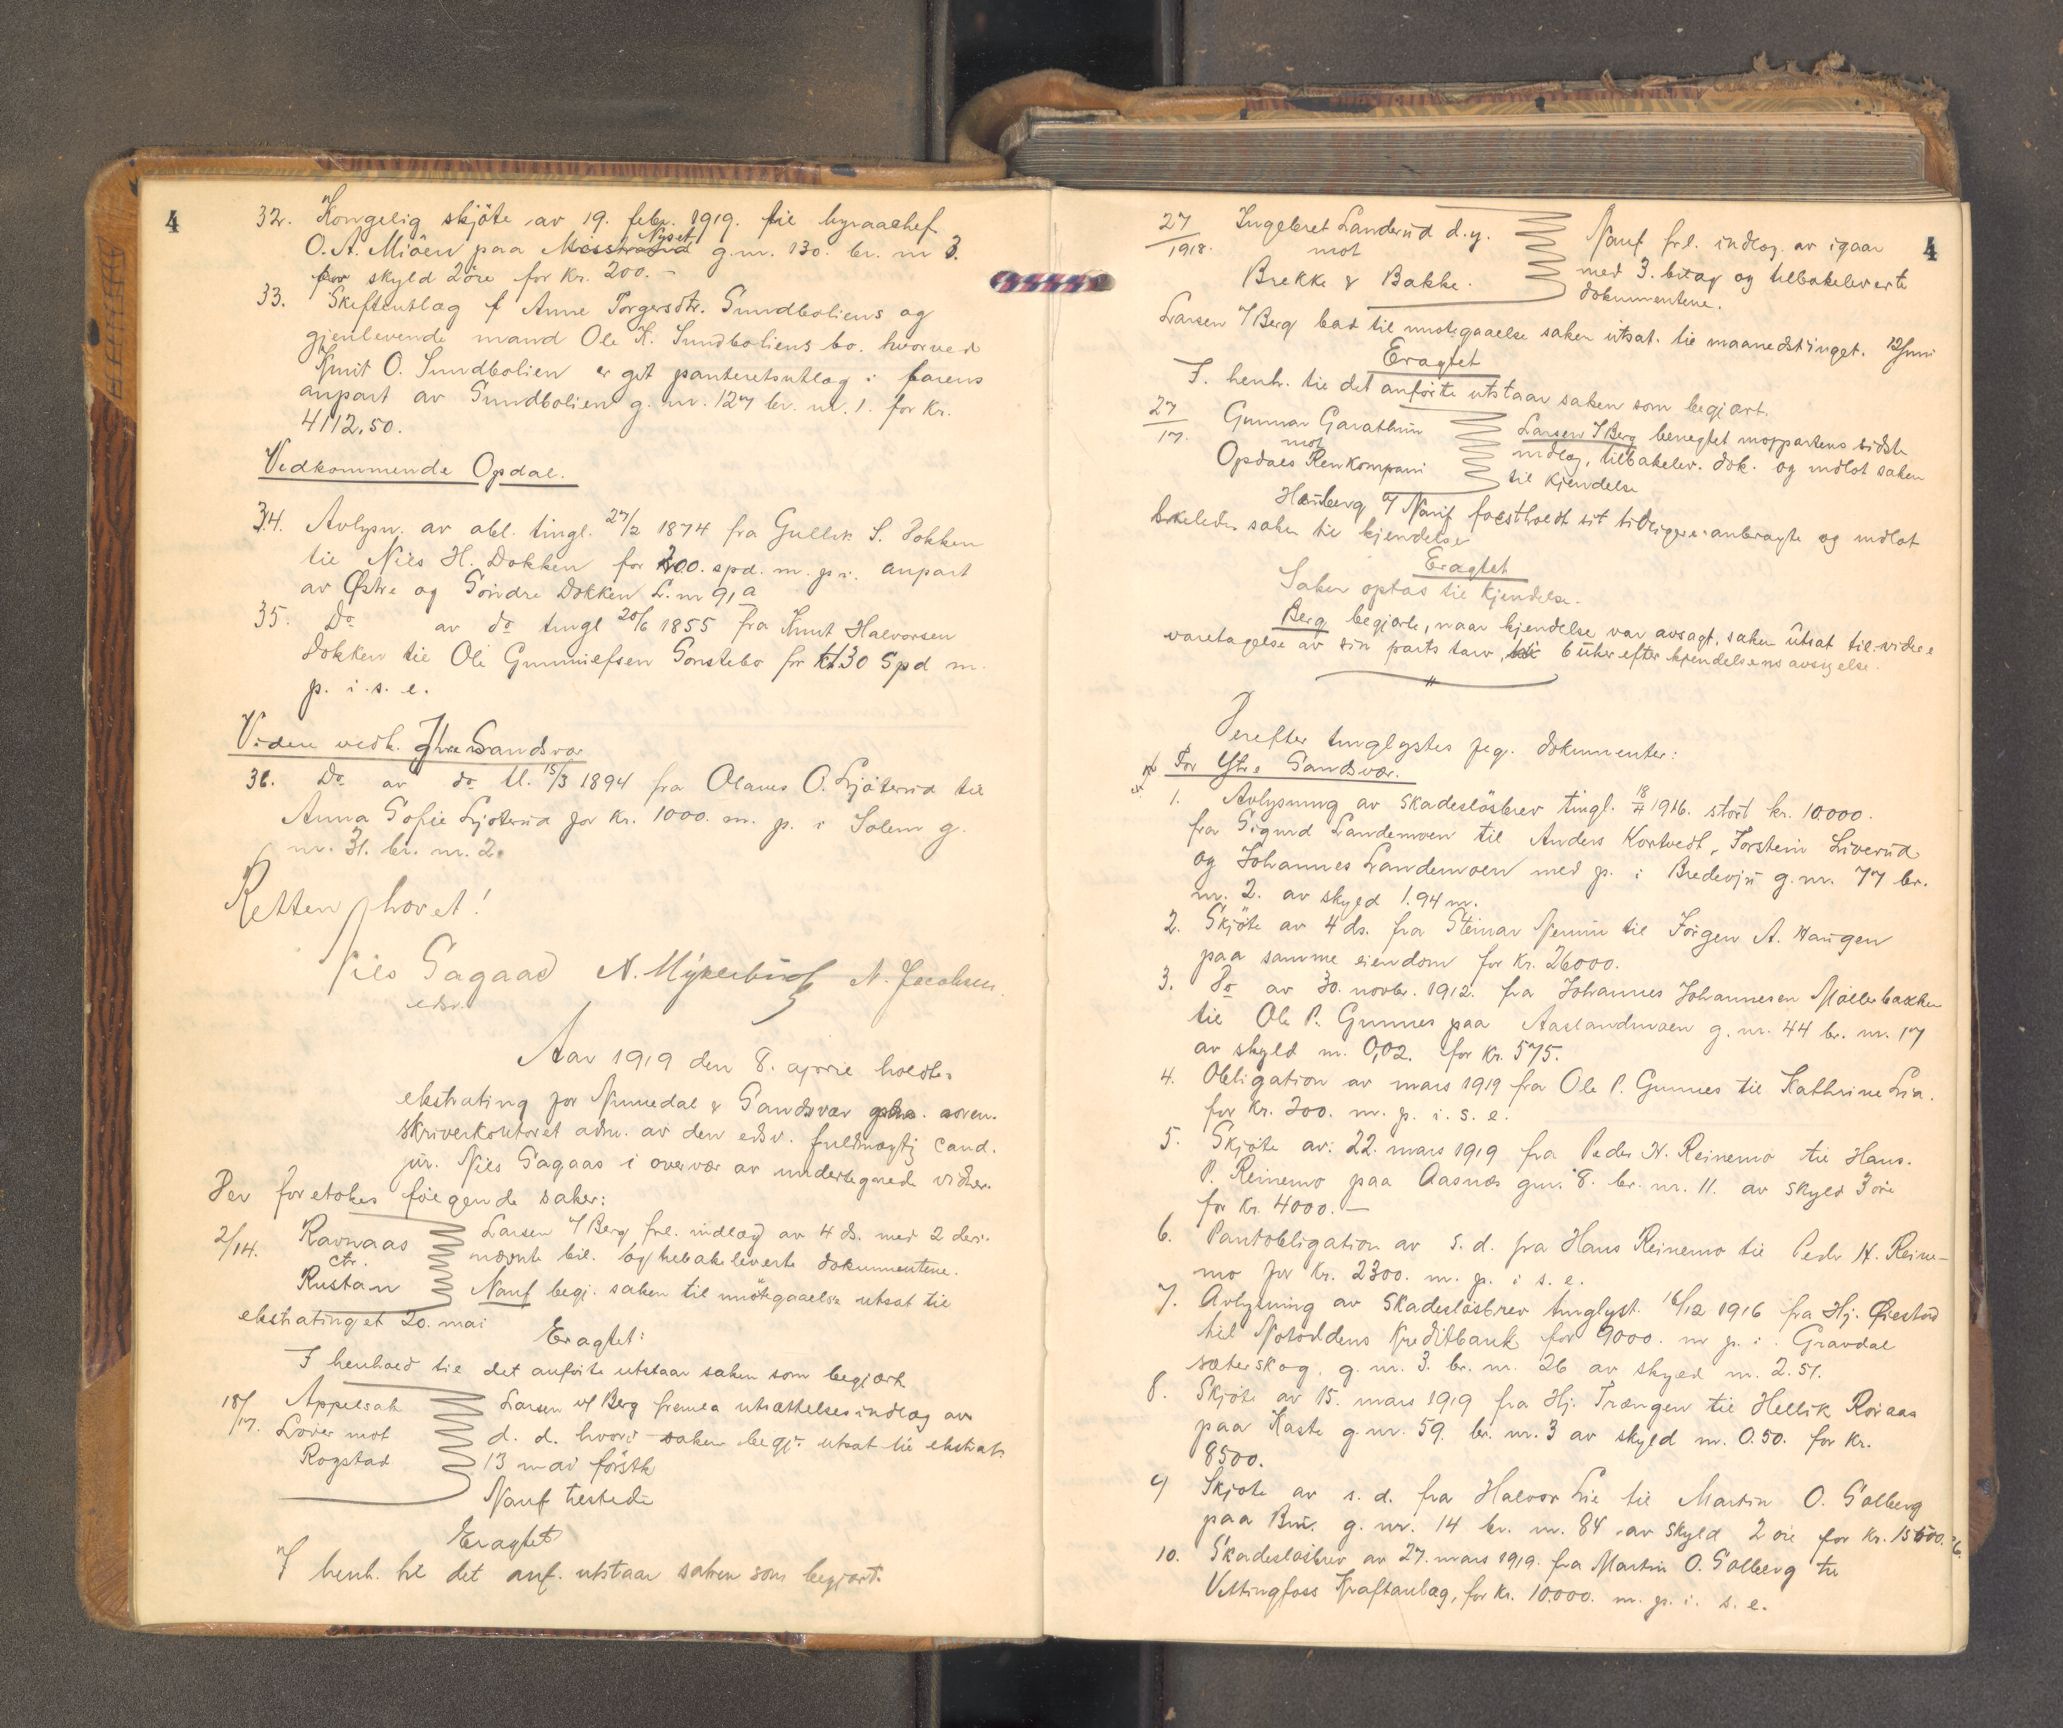 4
32. Kongelig skjöte av 19. febr. 1919. til byraachef
O. A. Miöen paa Nyset g.nr. 130. br. nr 3.
for skyld 2 öre for kr. 200.-
33. Skifteutlæg f Anne Torgersdtr. Sundboliens og
gjenlevende mand Ole K. Sundboliens bo. hvorved
Knut O. Sundbolien er git panteretsutlæg i boens
anpart av Sundbolien g. nr. 127 br. nr. 1. for Kr.
4112.50.
Vedkommende Opdal.
34. Avlysn. av obl. tingl. 27/2 1874 fra Gullik S. Dokken
til Niels H. Dokken for 200. spd. m. p. i. anpart
av Østre og Söndre Dokken L. nr 91a
35. Do av do tingl 20/6 1855 fra Knut Halvorsen
Dokken til Ole Gunnulfsen Gonstebo for 130 Spd m.
p. i. s. e.
Videre vedk. Ytre Sandsvær
36. Do av do tl. 15/3 1894 fra Olaves O. Ljöterud til
Anna Sofie Ljöterud for Kr. 1000. m. p. i Solem g.
nr. 31. br. nr. 2.
Retten hævet!
Niels Sagaas A. Myklebust N. Jacobsen
edsv.
Aar 1919 den 8. april holdtes
ekstrating for Numedal & Sandsvær paa soren-
skriverkontoret adm. av den edsv. fuldmægtig cand.
jur. Niels Sagaas i overvær av undertegnede vidner.
Der foretokes fölgende saker:
2/14. Ravnaas Larsen v/ Berg frl. indlæg av 4 ds. med 2 deri
ctr. nævnte bil. og tilbakeleverte dokumentene.
Rustan Nauf begj. saken til imötegaaelse utsat til
ekstratinget 20. mai
Eragtet:
I henhold til det anförte utstaar saken som begjært.
18/17. Appelsak Larsen v/ Berg fremla utsættelsesindlæg av
Lover mot d. d. hvori saken begj. utsat til ekstrat.
Rogstad 13 mai förstk
Nauf tilstede
Eragtet
I henh. til det anf. utstaar saken som begjært.
4
27/1918. Ingebret Landerud d.y. Nauf frl. indlæg av igaar
mot med 3. bilag og tilbakeleverte
Brekke & Bakke. dokumentene.
Larsen v/ Berg bad til imötegaaelse saken utsat til maanedstinget. 12 juni
Eragtet
I. henh. til det anförte utstaar saken som begjært.
27/17. Gunnar Garathun Larsen v/ Berg benegtet motpartens sidste
mot indlæg, tilbakelev. dok. og indlot saken
Opdals Renkompani til kjendelse
Hamberg v/ Nauf fastholdt sit tidligere anbragte og indlot
saken til kjendelse
Eragtet
Saken optas til kjendelse.
Berg begjærte, naar kjendelse var avsagt, saken utsat til videre
varetagelse av sin parts tarv, 6 uker efter kjendelsens avsigelse.
Derefter tinglystes fig. dokumenter:
For Ytre Sandsvær.
1. Avlysning av skadeslösbrev tingl. 18/4 1916. stort kr. 10.000.
fra Sigurd Landemoen til Anders Kortvedt, Torstein Liverud
og Johannes Landemoen med p. i Bredevju g. nr. 77 br.
nr. 2. av skyld 1.94 m.
2. Skjöte av 4 ds. fra Steinar Nerum til Jörgen A. Haugen
paa samme eiendom for Kr. 26000.
3. Do av 30. novbr. 1912. fra Johannes Johannesen Möllebakken
til Ole P. Gunnes paa Aaslandmoen g. nr. 44 br. nr. 17
av skyld m. 0,02. for Kr. 575.
4. Obligation av mars 1919 fra Ole P. Gunnes til Kathrine Lia.
for Kr. 200. m. p. i. s. e.
5. Skjöte av: 22. mars 1919 fra Peder N. Reinemo til Hans.
P. Reinemo paa Aasnæs gnr. 8. br. nr. 11. av skyld 3 öre
for Kr. 4000.-
6. Pantobligation av s. d. fra Hans Reinemo til Peder N. Reine-
mo for Kr. 2300. m. p. i s. e.
7. Avlysning av skadeslösbrev tinglyst. 16/12 1916 fra Hj. Øiestad
til Notoddens Kreditbank for 9000. m p. i. Gravdal
sæterskog. g. nr. 3. br. nr. 26 av skyld m. 2.51.
8. Skjöte av 15. mars 1919 fra Hj. Trængen til Hellik Roiaas
paa Kaste g. nr. 59. br. nr. 3 av skyld m. 0.50. for Kr.
8500.
9 Skjöte av s. d. fra Halvor Lie til Martin O. Solberg
paa Bru. g. nr. 14 br. nr. 84 av skyld 2 öre for Kr. 15600.
10. Skadeslösbrev av 27. mars 1919. fra Martin O. Solberg til
Vittingfoss Kraftanlæg, for Kr. 10.000. m. p. i. s. e.